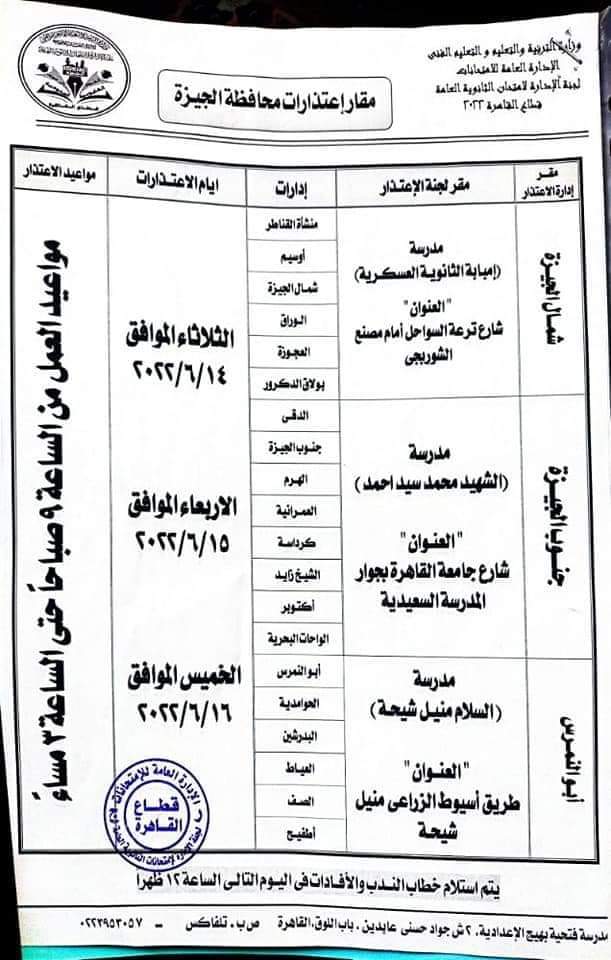 وزارة التربية والتعليم و التعليم الفنى
الإدارة العامة للامتحانات
لجنة الإدارة لامتحان الثانوية العامة
قطاع القاهرة ٢٠٢٢
مقار إعتذارات محافظة الجيزة
مقر إدارة الاعتذار
مقر لجنة الإعتذار
إدارات
ايام الاعتذارات
مواعيد الاعتذار
شمال الجيزة
مدرسة
(إمبابة الثانوية العسكرية)
"العنوان"
شارع ترعة السواحل أمام مصنع
الشوربجى
منشأة القناطر
أوسيم
شمال الجيزة
الوراق
العجوزة
بولاق الدكرور
جنوب الجيزة
مدرسة
(الشهيد محمد سيد احمد)
"العنوان"
شارع جامعة القاهرة بجوار
المدرسة السعيدية
الدقى
جنوب الجيزة
الهرم
العمرانية
كرداسة
الشيخ زايد
أكتوبر
الواحات البحرية
أبو النمرس
مدرسة
(السلام منيل شيحة)
"العنوان"
طريق أسيوط الزراعى منيل
شيحة
أبو النمرس
الحوامدية
البدرشين
العياط
الصف
أطفيح
الثلاثاء الموافق
٢٠٢٢/٦/١٤
الاربعاء الموافق
٢٠٢٢/٦/١٥
الخميس الموافق
٢٠٢٢/٦/١٦
مواعيد العمل من الساعة ٩ صباحاً حتى الساعة ٣ مساءً
الإدارة العامة للإمتحانات
قطاع
القاهرة
يتم استلام خطاب الندب والأفادات فى اليوم التالى الساعة ١٢ ظهراً
مدرسة فتحية بهيج الإعدادية. ٢ ش جواد حسنى عابدين . باب اللوق. القاهرة ص.ب. تلفاكس - ٠٢٢٣٩٥٣٠٥٧